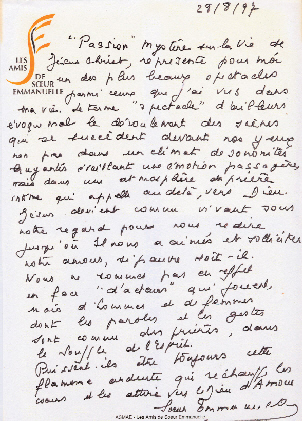 28/8/97
LES
AMIS
DE SŒUR
EMMANUELLE
"Passion" mystère sur la vie de
Jésus Christ, représente pour moi
un des plus beaux spectacles
parmi ceux que j'ai vus dans
ma vie. Le terme "spectacle" d'ailleurs
évoque mal le déroulement des scènes
qui se succèdent devant nos yeux
non pas dans un climat de sonorités
bruyantes éveillant une émotion passagère
mais dans une atmosphère de prière
intime qui appelle au delà, vers Dieu.
Jésus devient comme vivant sous
notre regard pour nous redire
jusqu'où Il nous a aimés et solliciter
notre amour, si pauvre soit-il.
Nous ne sommes pas en effet
en face "d'acteurs" qui jouent,
mais d'hommes et de femmes
dont les paroles et les gestes
sont comme des prières, dans
le souffle de l'esprit.
Puissent-ils être toujours cette
flamme ardente qui réchauffe les
cœurs et les attire vers le Dieu d'Amour
Sœur Emmanuelle
ASMAE - Les Amis de Sœur Emmanuelle